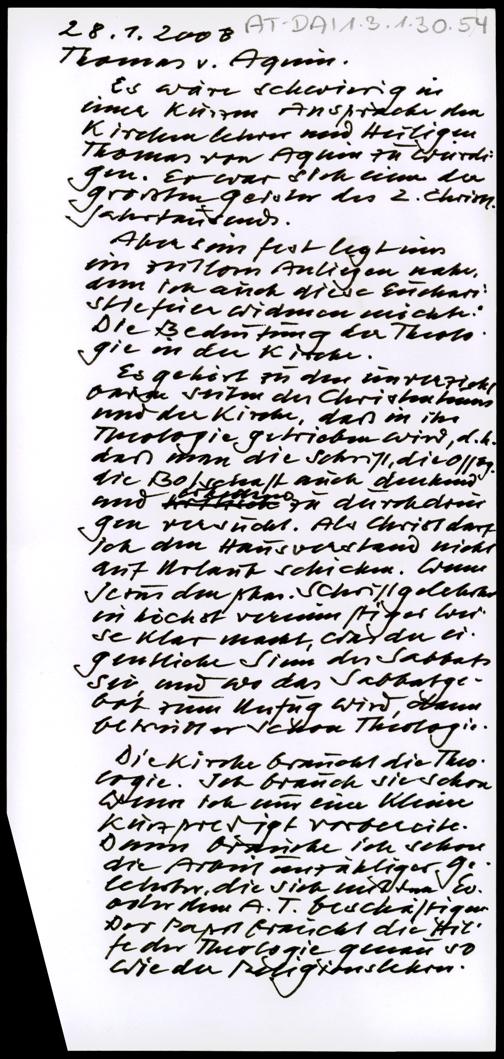 28.1.2008 AT-DA|1.3.1.30.54
Thomas v. Aquin.
Es wäre schwierig in
einer kurzen Ansprache den
Kirchenlehrer und Heiligen
Thomas von Aquin zu würdi
gen. Er war sich einer der
grössten Geister des 2. christl.
Jahrtausends.
Aber sein Fest legt uns
ein zeitloses Anliegen nahe,
dem ich auch diese Euchari
stiefeier widmen möchte:
Die Bedeutung der Theolo-
gie in der Kirche.
Es gehört zu den unverzicht
baren Seiten des Christentums
und der Kirche, daß in ihr
Theologie getrieben wird, d.h.
daß man die Schrift, die Offbg.
die Botschaft auch denkend
und zu durchdrin
gen versucht. Als Christ darf
ich den Hausverstand nicht
auf Urlaub schicken. Wenn
Jesus den phar. Schriftgelehrten
in höchst vernünftiger Wei-
se klar macht, was der ei-
gentliche Sinn des Sabbats
sei, und wo das Sabbatge-
bot zum Unfug wird, dann
betreibt er schon Theologie.
Die Kirche braucht die Theo-
logie. Ich brauch sie schon
wenn ich nur eine kleine
Kurzpredigt vorbereite.
Dann brauche ich schon
die Arbeit unzähliger Ge-
lehrter, die sich mit dem Ev.
oder dem A.T. beschäftigen.
Der Papst braucht die Hil-
fe der Theologie genau so
wie der Religionslehrer.